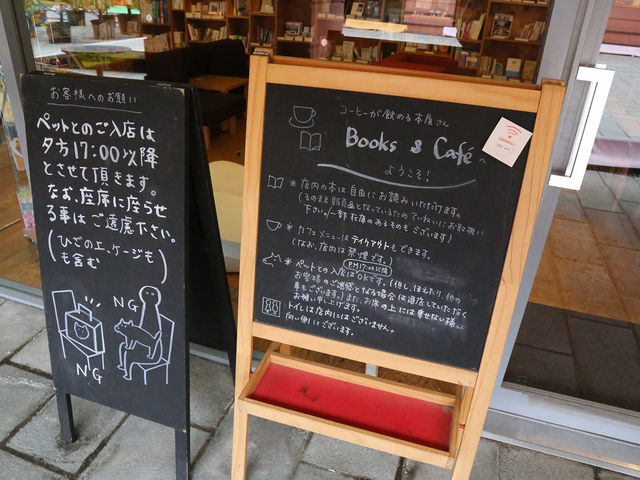 お客様へのお願い
ペットとのご入店は
夕方17:00以降
とさせて頂きます。
なお、座席に座らせ
る事はご遠慮下さい。
(ひざの上、ケージも
も含む)
NG
NG
コーヒーが飲める本屋さん
Books & Caféへ
ようこそ!
*店内の本は自由にお読みいただけます。
(そのまま販売品となっているためていねいにお取扱い
下さい/一部在庫のあるものもございます)
*カフェメニューはテイクアウトもできます。
(なお、店内は禁煙です。)
PM17:00以降
*ペットとの入店はOKです。(但し、ほえたり、他の
お客様のご迷惑となる場合は退店していただく
事もございます。)また、お席の上には乗せない様に
お願い申し上げます。
*トイレは店内にはございません。
向い側にございます。